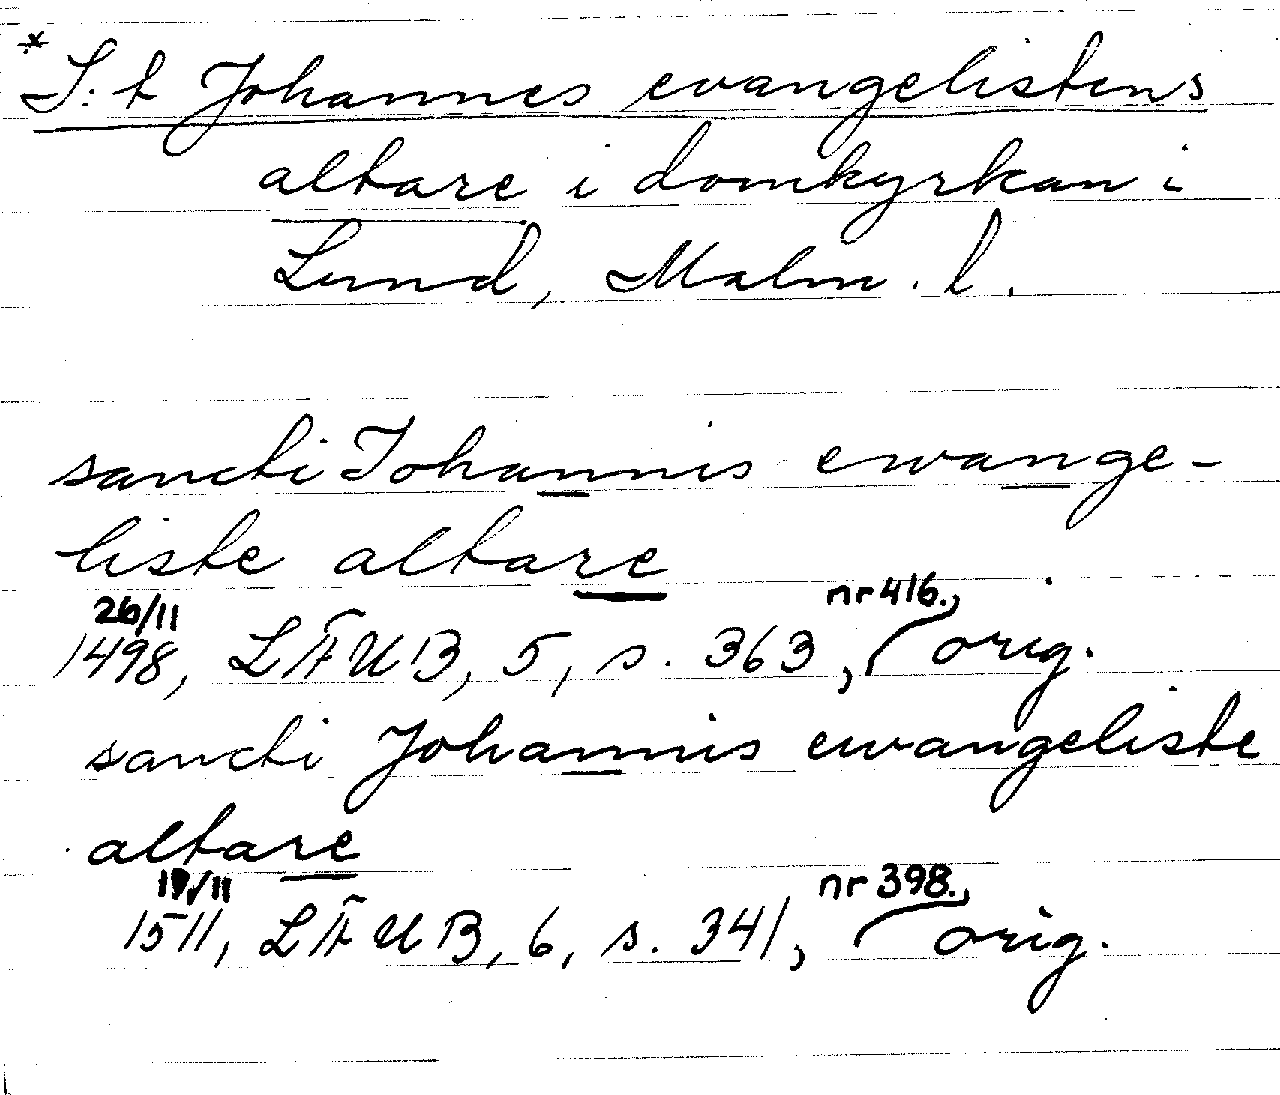 * S:t Johannes evangelistens
altare i domkyrkan i
Lund, Malm. l.
sancti Johannis ewange-
liste altare
26/11 nr 416.,
1498, LÄUB, 5, s. 363, orig.
sancti Johannis ewangeliste
altare
nr 398.,
1511, LÄUB, 6, s. 341, orig.